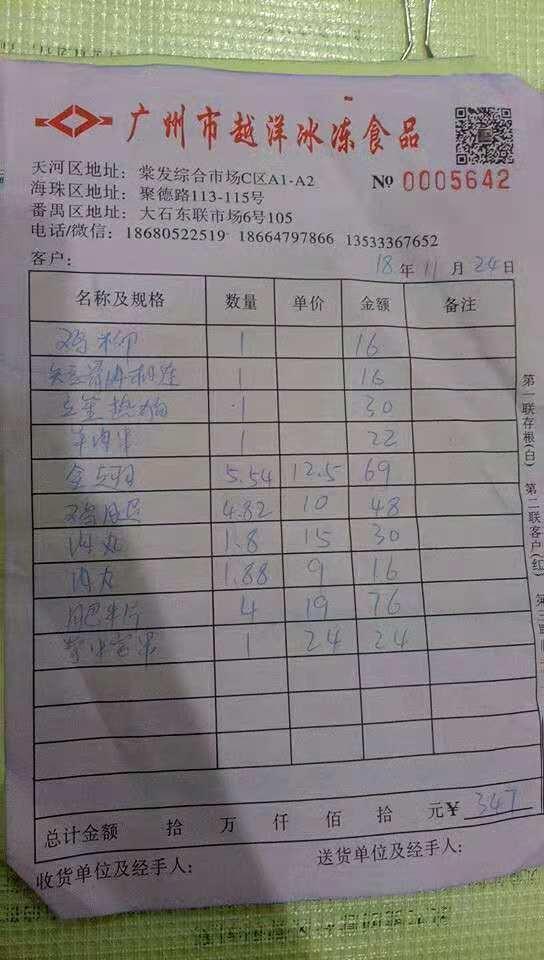 广州市越洋冰冻食品
天河区地址：棠发综合市场C区A1-A2
海珠区地址：聚德路113-115号
番禺区地址：大石东联市场6号105
电话/微信：18680522519 18664797866 13533367652
№ 0005642
客户：
18年11月24日
名称及规格 数量 单价 金额 备注
鸡柳 1 16
1 16
1 30
羊肉串 1 22
5.54 12.5 69
4.82 10 48
肉丸 1.8 15 30
肉丸 1.88 9 16
4 19 76
1 24 24
总计金额 拾 万 仟 佰 拾 元¥ 347
收货单位及经手人： 送货单位及经手人：
第一联存根(白)
第二联客户(红)